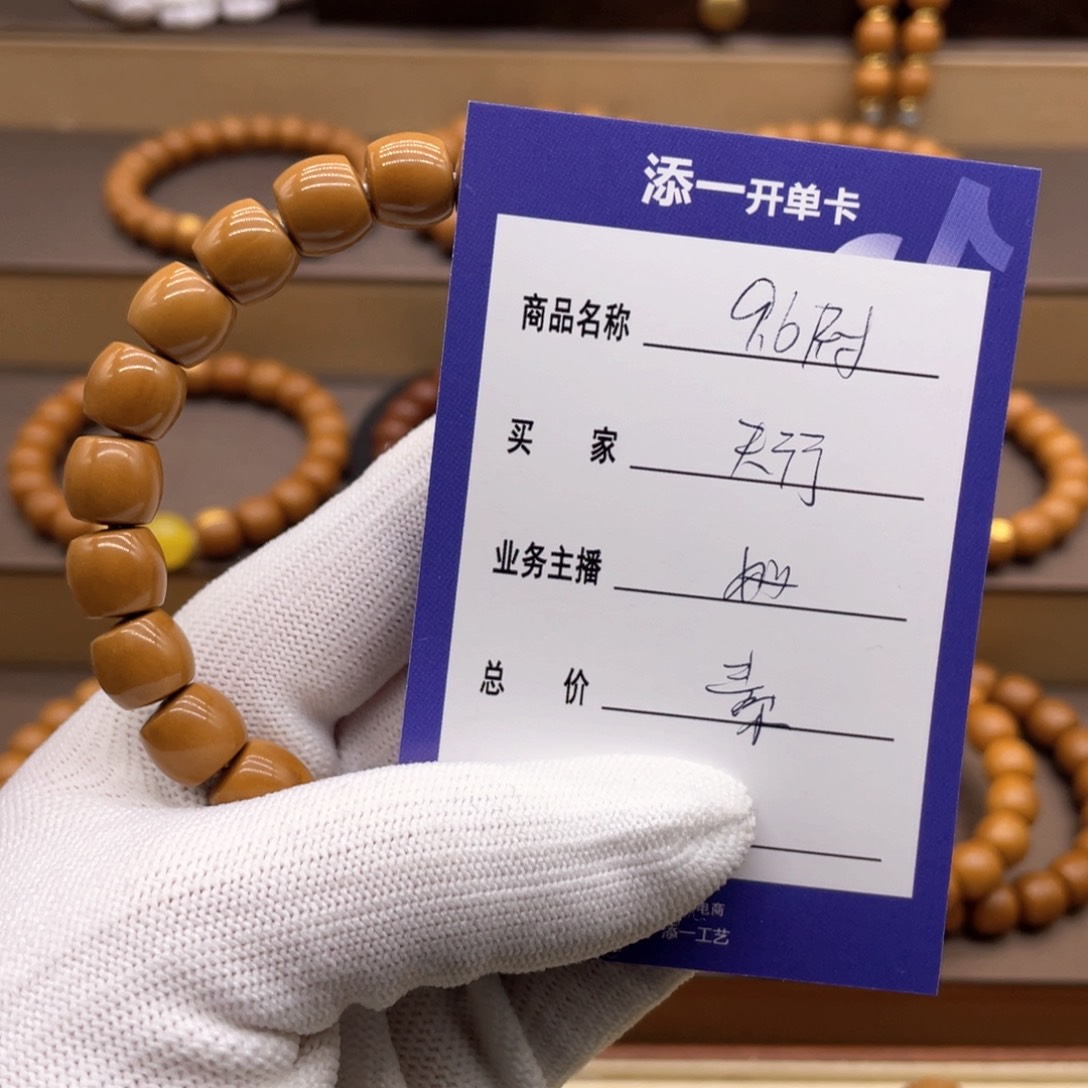 添一开单卡
商品名称 9.6
买 家 天行
业务主播
总 价
电商
添一工艺